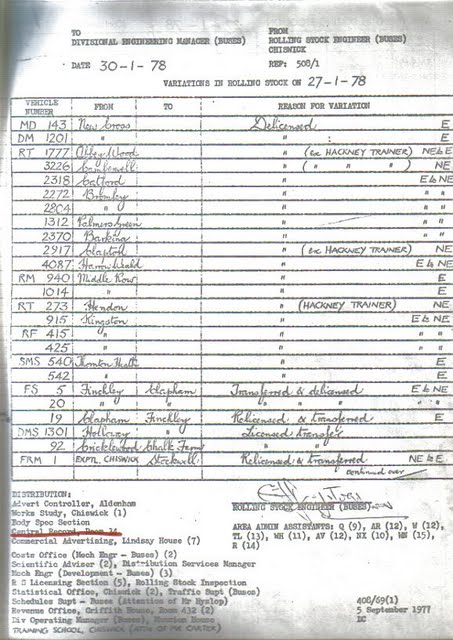 TO
DIVISIONAL ENGINEERING MANAGER (BUSES)
FROM
ROLLING STOCK ENGINEER (BUSES)
CHISWICK
DATE 30-1-78
REF: 508/1
VARIATIONS IN ROLLING STOCK ON 27-1-78
VEHICLE NUMBER FROM TO REASON FOR VARIATION
MD 143 New Cross Delicensed E
DM 1201 " " E
RT 1777 Abbey Wood " (ex HACKNEY TRAINER) NE & E
3226 Camberwell " ( " " " ) NE
2318 Catford " E & NE
2272 Bromley " " "
2204 " " " "
1312 Palmers Green " " "
2370 Barking " " "
2917 Clapton " (ex HACKNEY TRAINER) NE
4087 Harrow Weald " E & NE
RM 940 Middle Row " E
1014 " " E
RT 273 Hendon " (HACKNEY TRAINER) NE
915 Kingston " E & NE
RF 415 " " " "
425 " " " "
SMS 540 Thornton Heath " E
542 " " E
FS 5 Finchley Clapham Transferred & delicensed E & NE
20 " " " " " "
19 Clapham Finchley Relicensed & transferred E
DMS 1301 Holloway Licensed transfer
92 Cricklewood Chalk Farm "
FRM 1 EXPTL CHISWICK Stockwell Relicensed & transferred NE & E
continued over
DISTRIBUTION:
Advert Controller, Aldenham
Works Study, Chiswick (1)
Body Spec Section
Central Record, Room 14
Commercial Advertising, Lindsay House (7)
Costs Office (Mech Engr - Buses) (2)
Scientific Adviser (2), Distribution Services Manager
Mech Engr (Development - Buses) (3)
R S Licensing Section (5), Rolling Stock Inspection
Statistical Office, Chiswick (2), Traffic Supt (Buses)
Schedules Supt - Buses (Attention of Mr Hyslop)
Revenue Office, Griffith House, Room 432 (2)
Div Operating Manager (Buses), Mansion House
TRAINING SCHOOL, CHISWICK (ATTN OF MR CARTER)
ROLLING STOCK ENGINEER (BUSES)
AREA ADMIN ASSISTANTS: Q (9), AR (12), W (12),
TL (13), WH (11), AV (12), NX (10), MN (15),
R (14)
408/69(1)
5 September 1977
EC